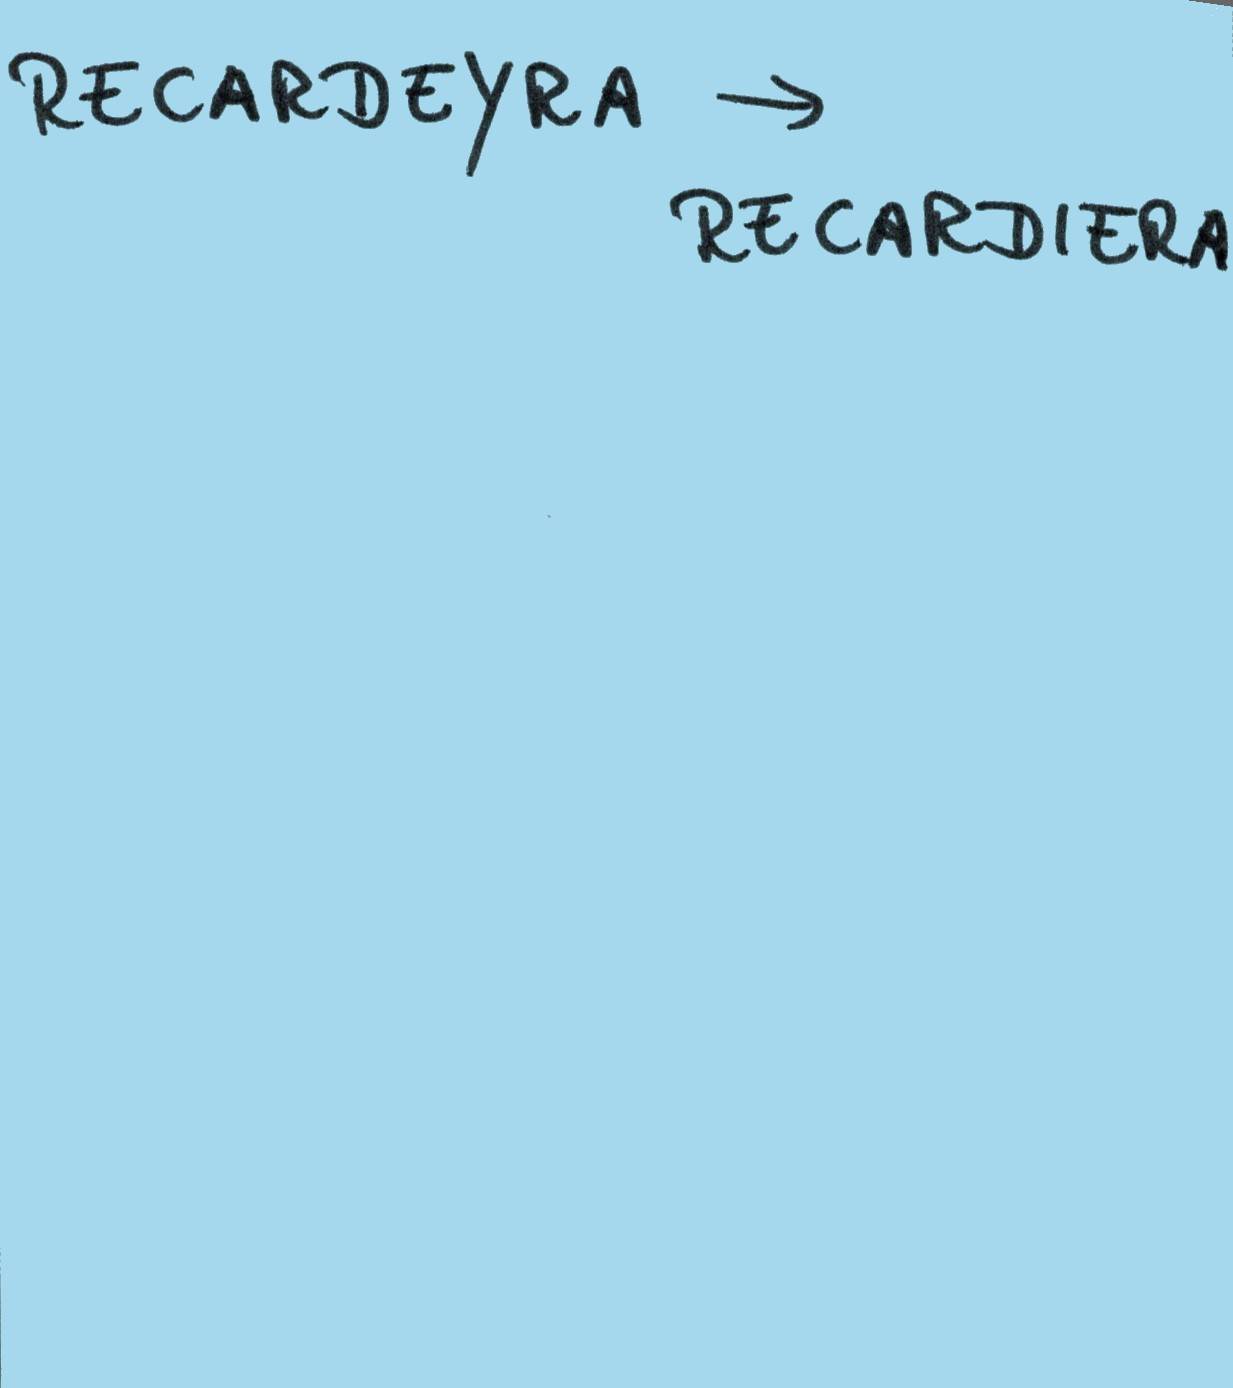 RECARDEYRA →
RECARDIERA